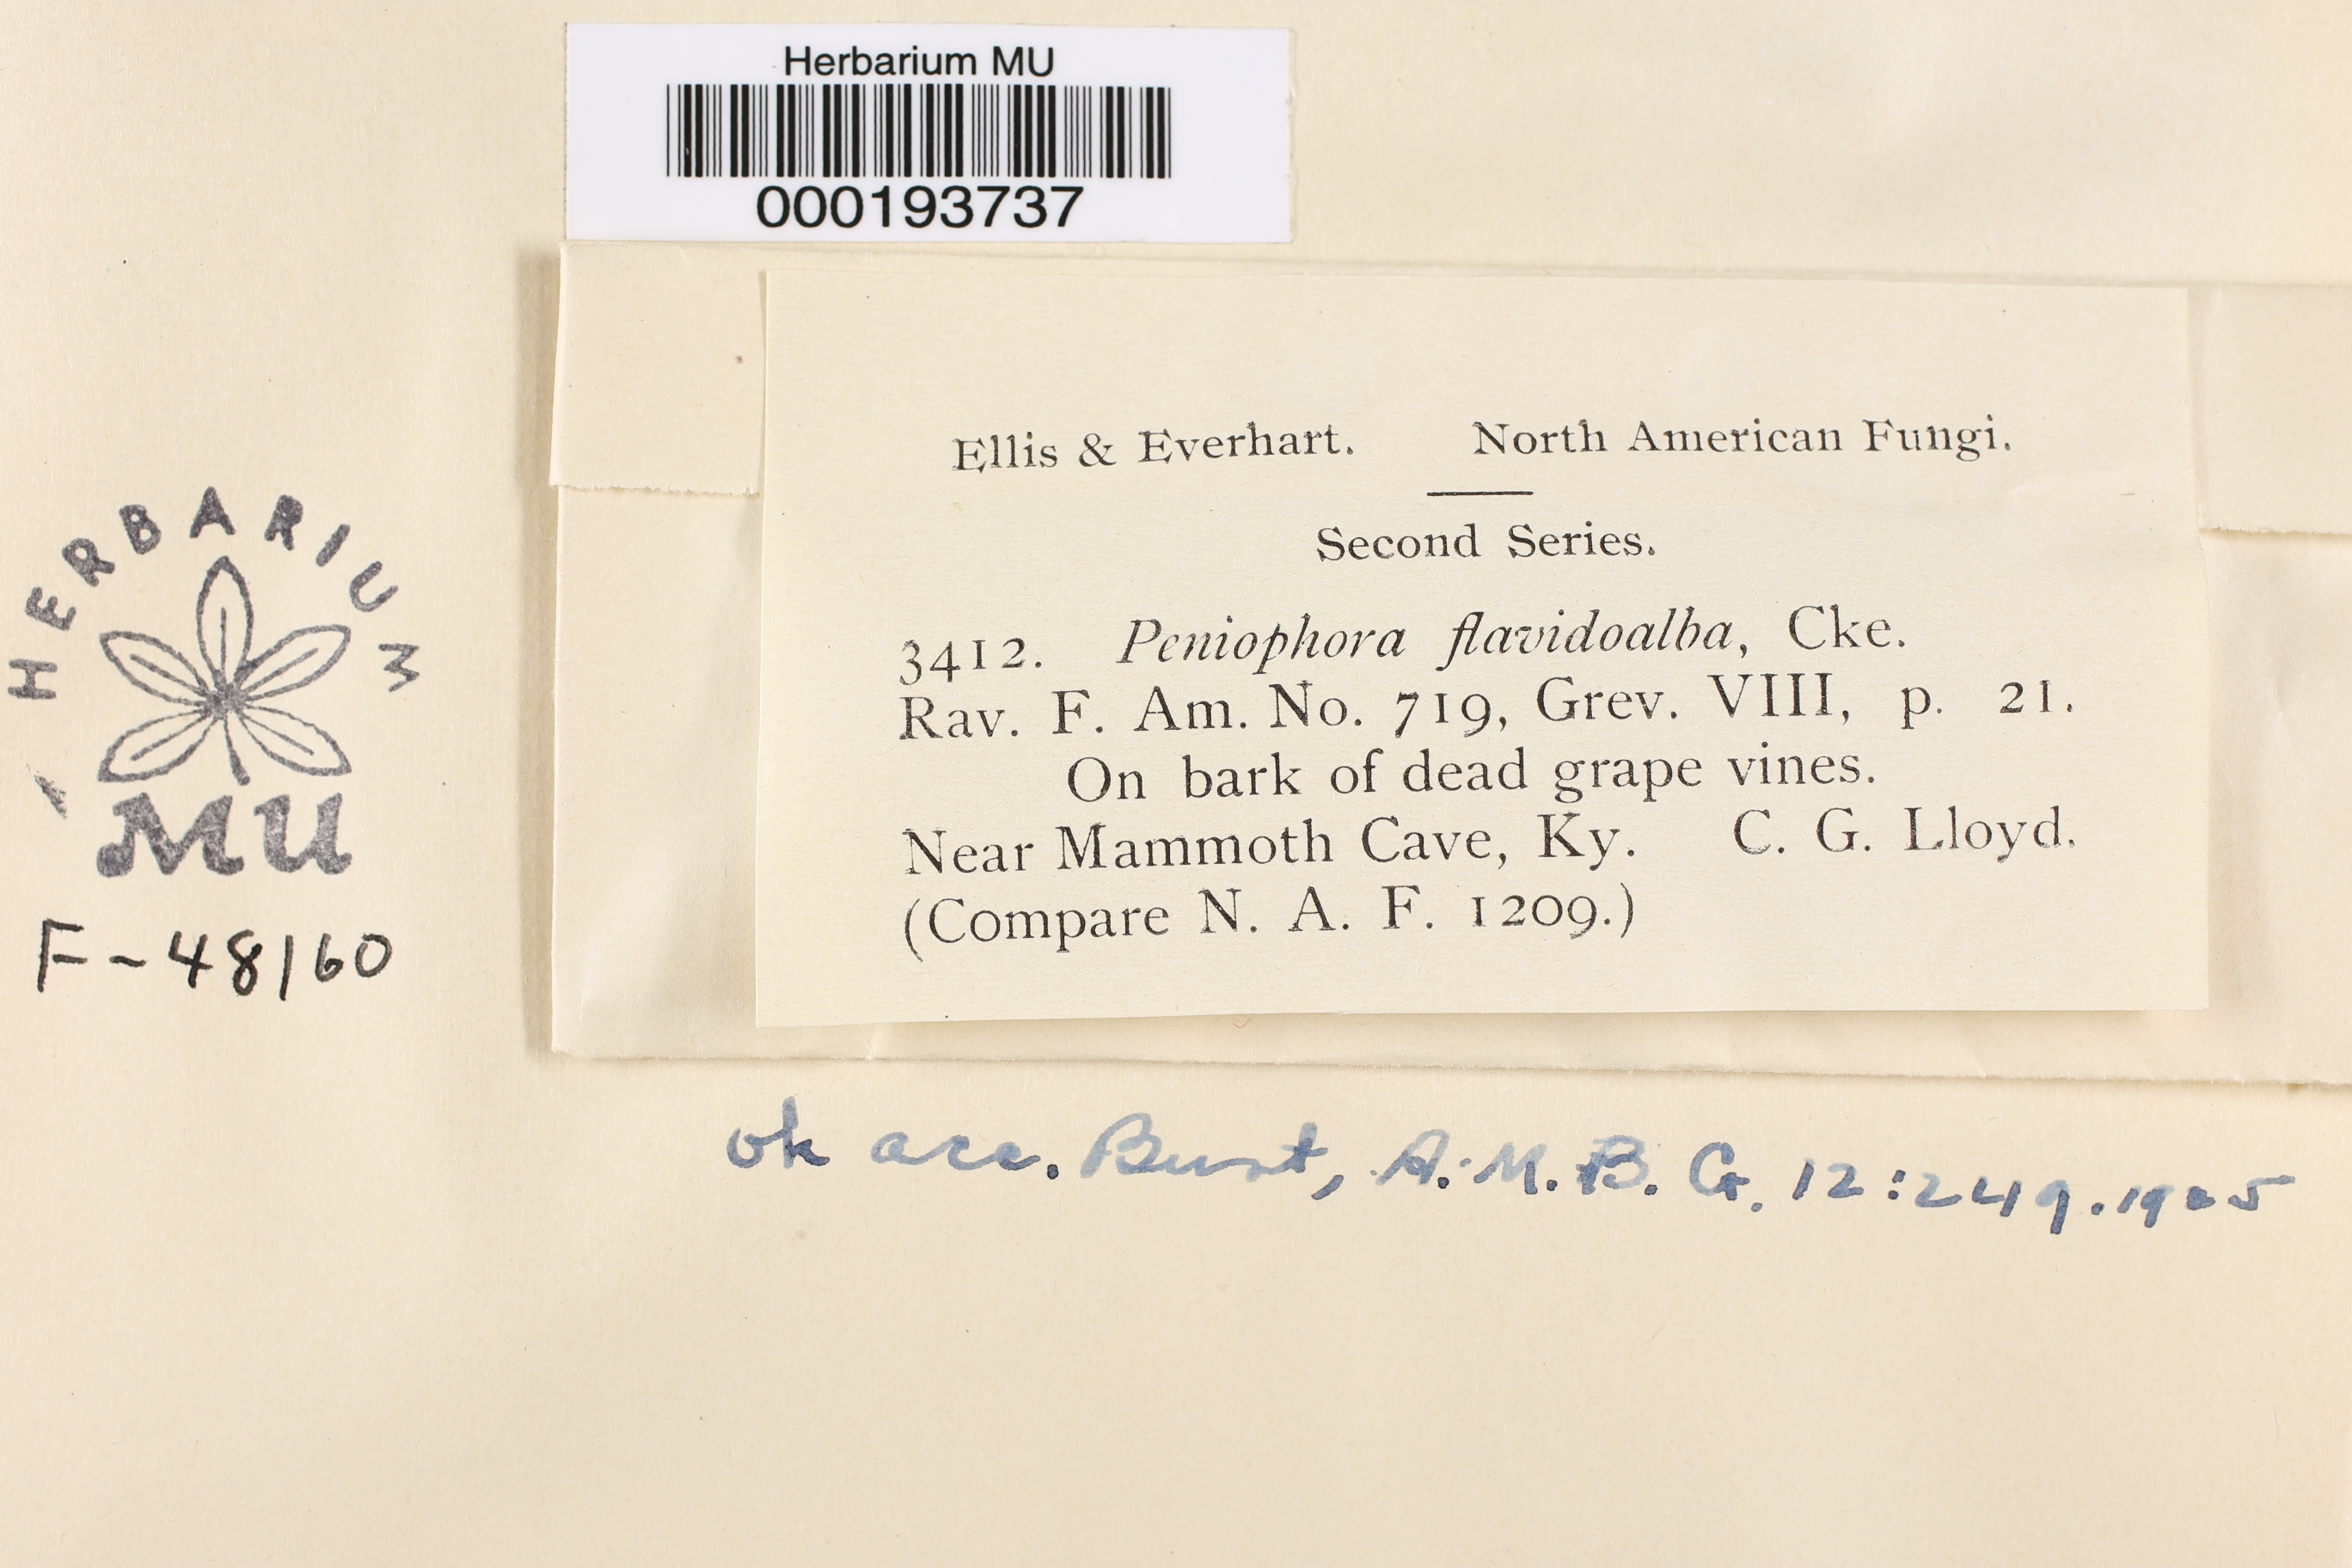 Herbarium MU
000193737
Ellis & Everhart. North American Fungi.
Second Series.
3412. Peniophora flavidoalba, Cke.
Rav. F. Am. No. 719, Grev. VIII, p. 21.
On bark of dead grape vines.
Near Mammoth Cave, Ky. C. G. Lloyd.
(Compare N. A. F. 1209.)
HERBARIUM
MU
F-48160
ok acc. Burt, A.M.B.G. 12:249.1925